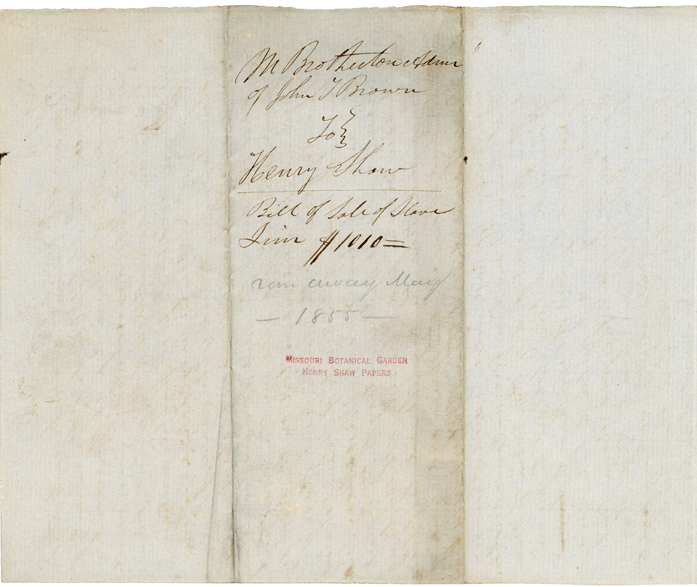 M Brotherton Admr
of John T Brown
To
Henry Shaw
Bill of Sale of Slave
Jim $1010=
ran away May
— 1855 —
MISSOURI BOTANICAL GARDEN
HENRY SHAW PAPERS